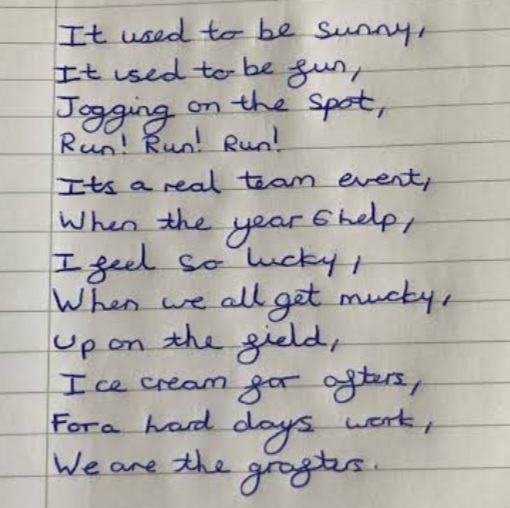 It used to be sunny,
It used to be fun,
Jogging on the spot,
Run! Run! Run!
Its a real team event,
When the year 6 help,
I feel so lucky,
When we all get mucky,
Up on the field,
Ice cream for afters,
For a hard days work,
We are the grafters.